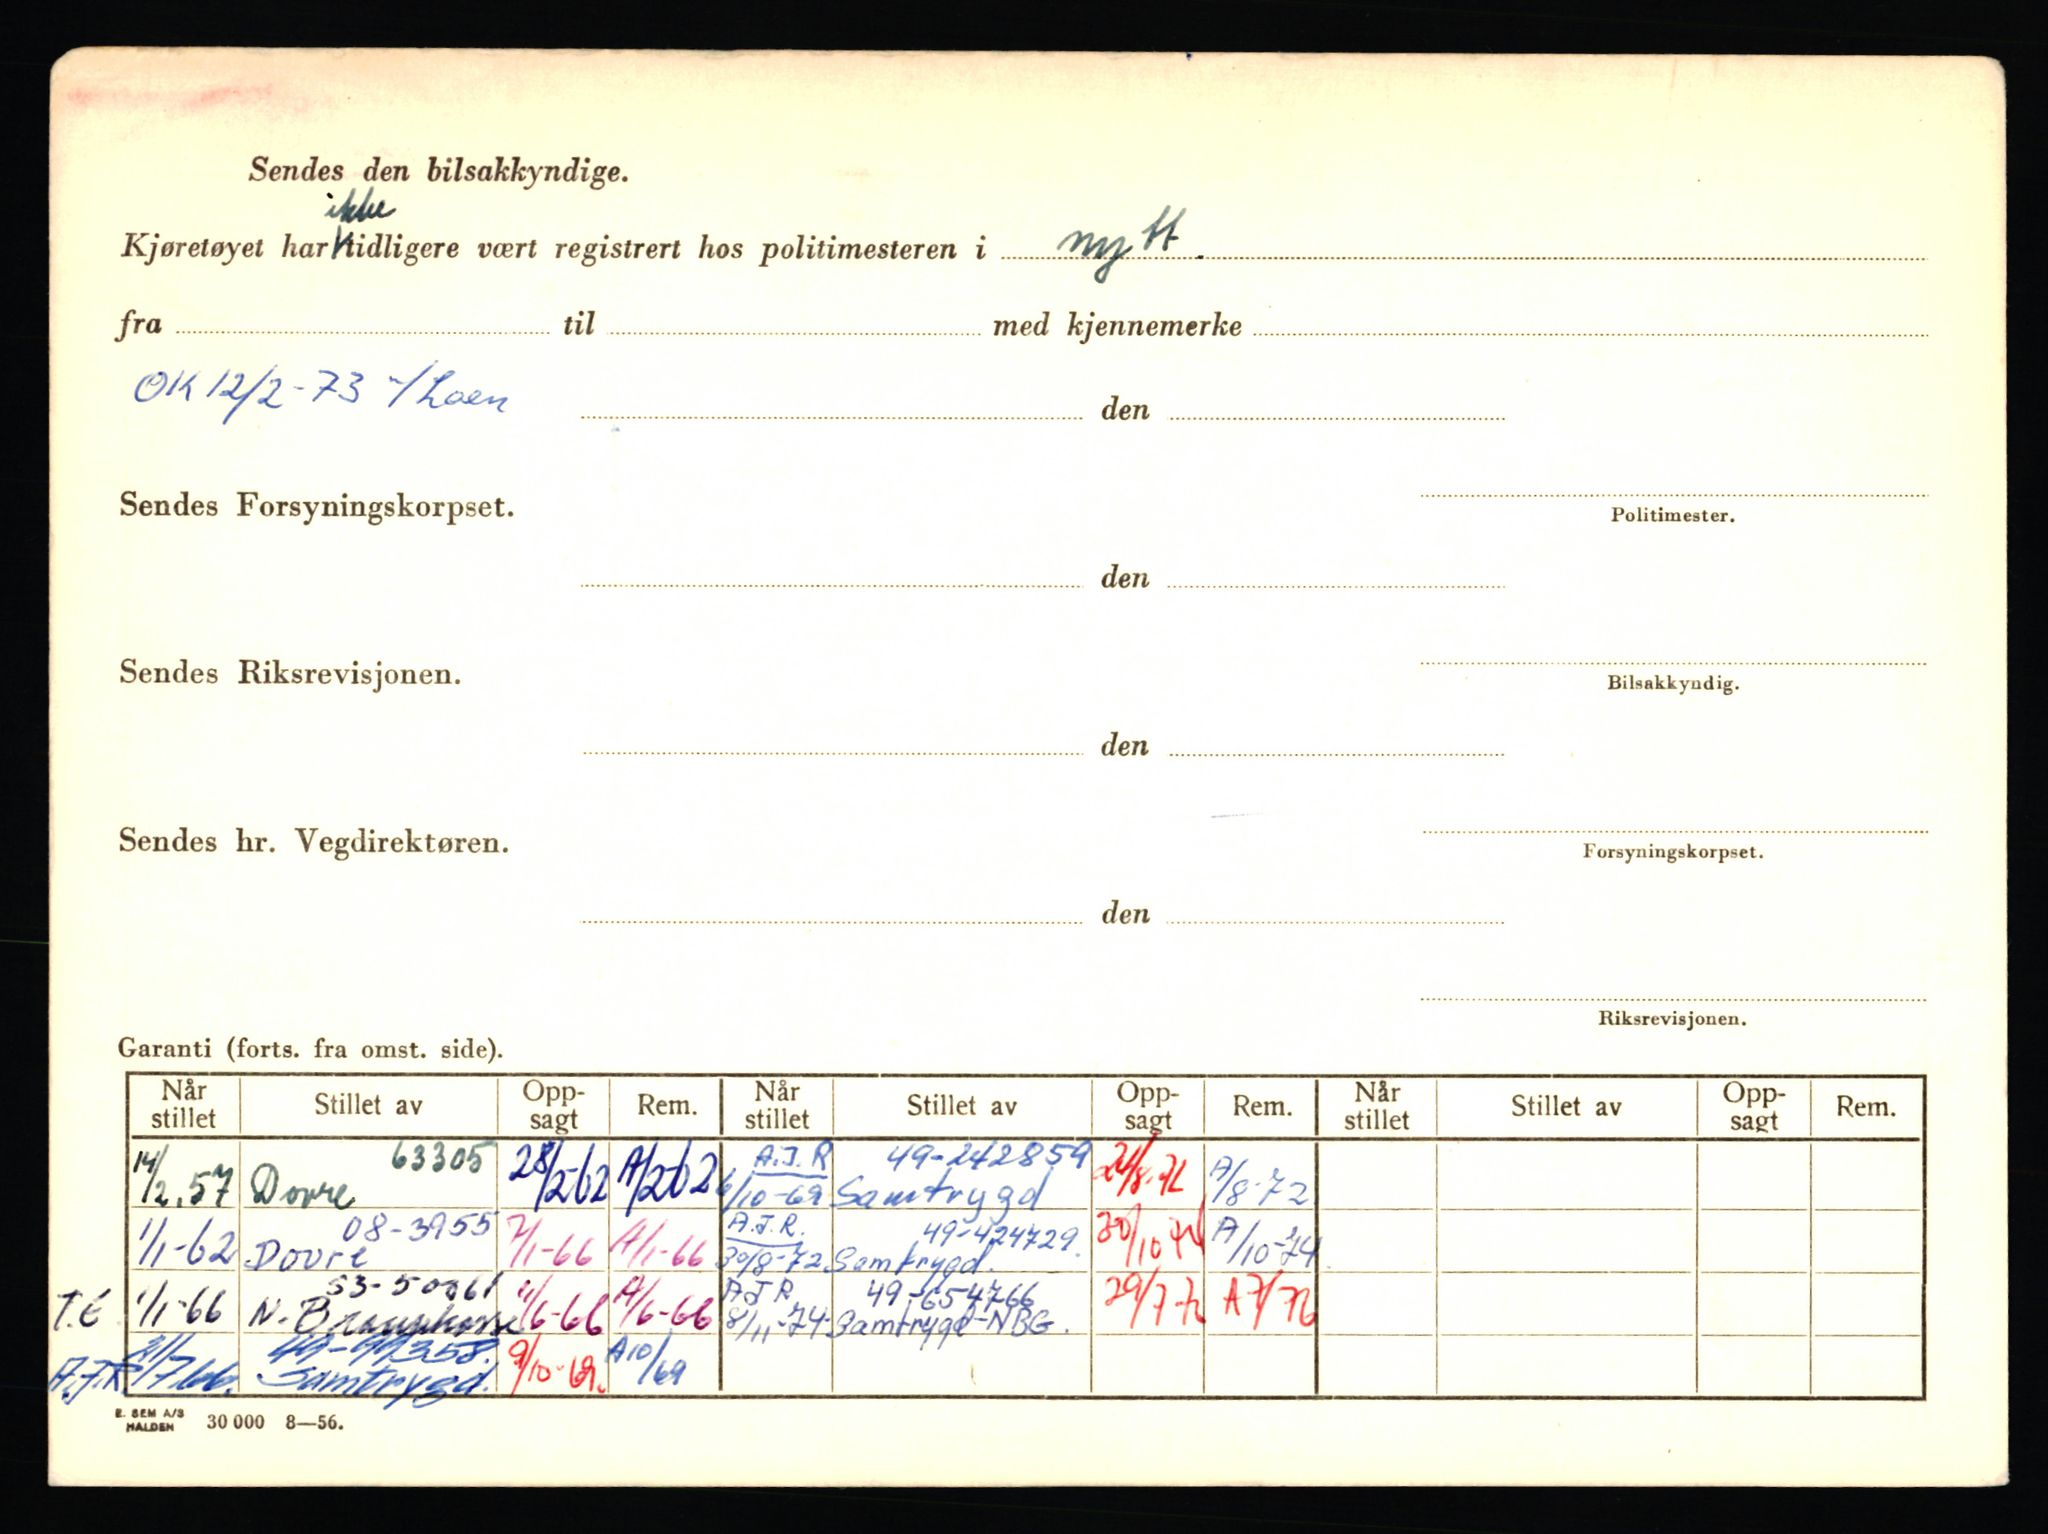 Sendes den bilsakkyndige.
ikke
Kjøretøyet har tidligere vært registrert hos politimesteren i nytt.
fra til med kjennemerke
OK 12/2-73 /Loen
den
Sendes Forsyningskorpset.
Politimester.
den
Sendes Riksrevisjonen.
Bilsakkyndig.
den
Sendes hr. Vegdirektøren.
Forsyningskorpset.
den
Riksrevisjonen.
Garanti (forts. fra omst. side).
Når stillet Stillet av Opp-sagt Rem. Når stillet Stillet av Opp-sagt Rem. Når stillet Stillet av Opp-sagt Rem.
14/2.57 Dovre 63305 28/2-62 A/2-62 A.J.R 6/10-69 49-242859 Samtrygd /8-72 A/8-72
1/1-62 08-3955 Dovre 7/1-66 A/1-66 A.J.R. 30/8-72 49-424729. Samtrygd. 30/10 74 A/10-74
T.E. 1/1-66 N. 11/6-66 A/6-66 AJR 8/11-74 49-654766 Samtrygd-NBG. 29/7-76 A7/76
A.J.R. 21/7.66. 49-99358. Samtrygd. 9/10-69. A10/69
E. SEM A/S
HALDEN 30 000 8—56.